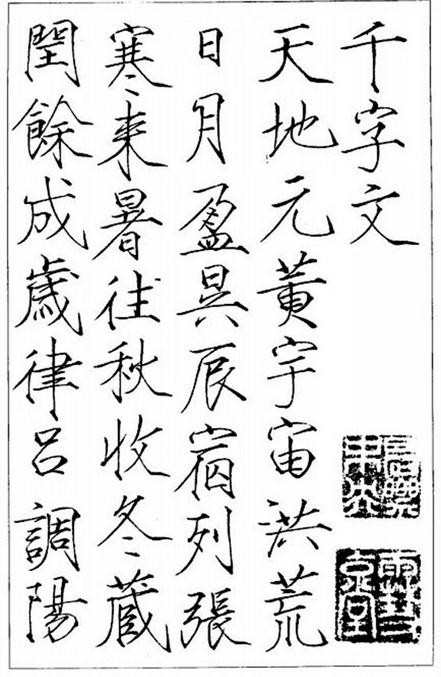 千字文
天地元黃宇宙洪荒
日月盈昃辰宿列張
寒来暑往秋收冬蔵
閏餘成歳律呂調陽